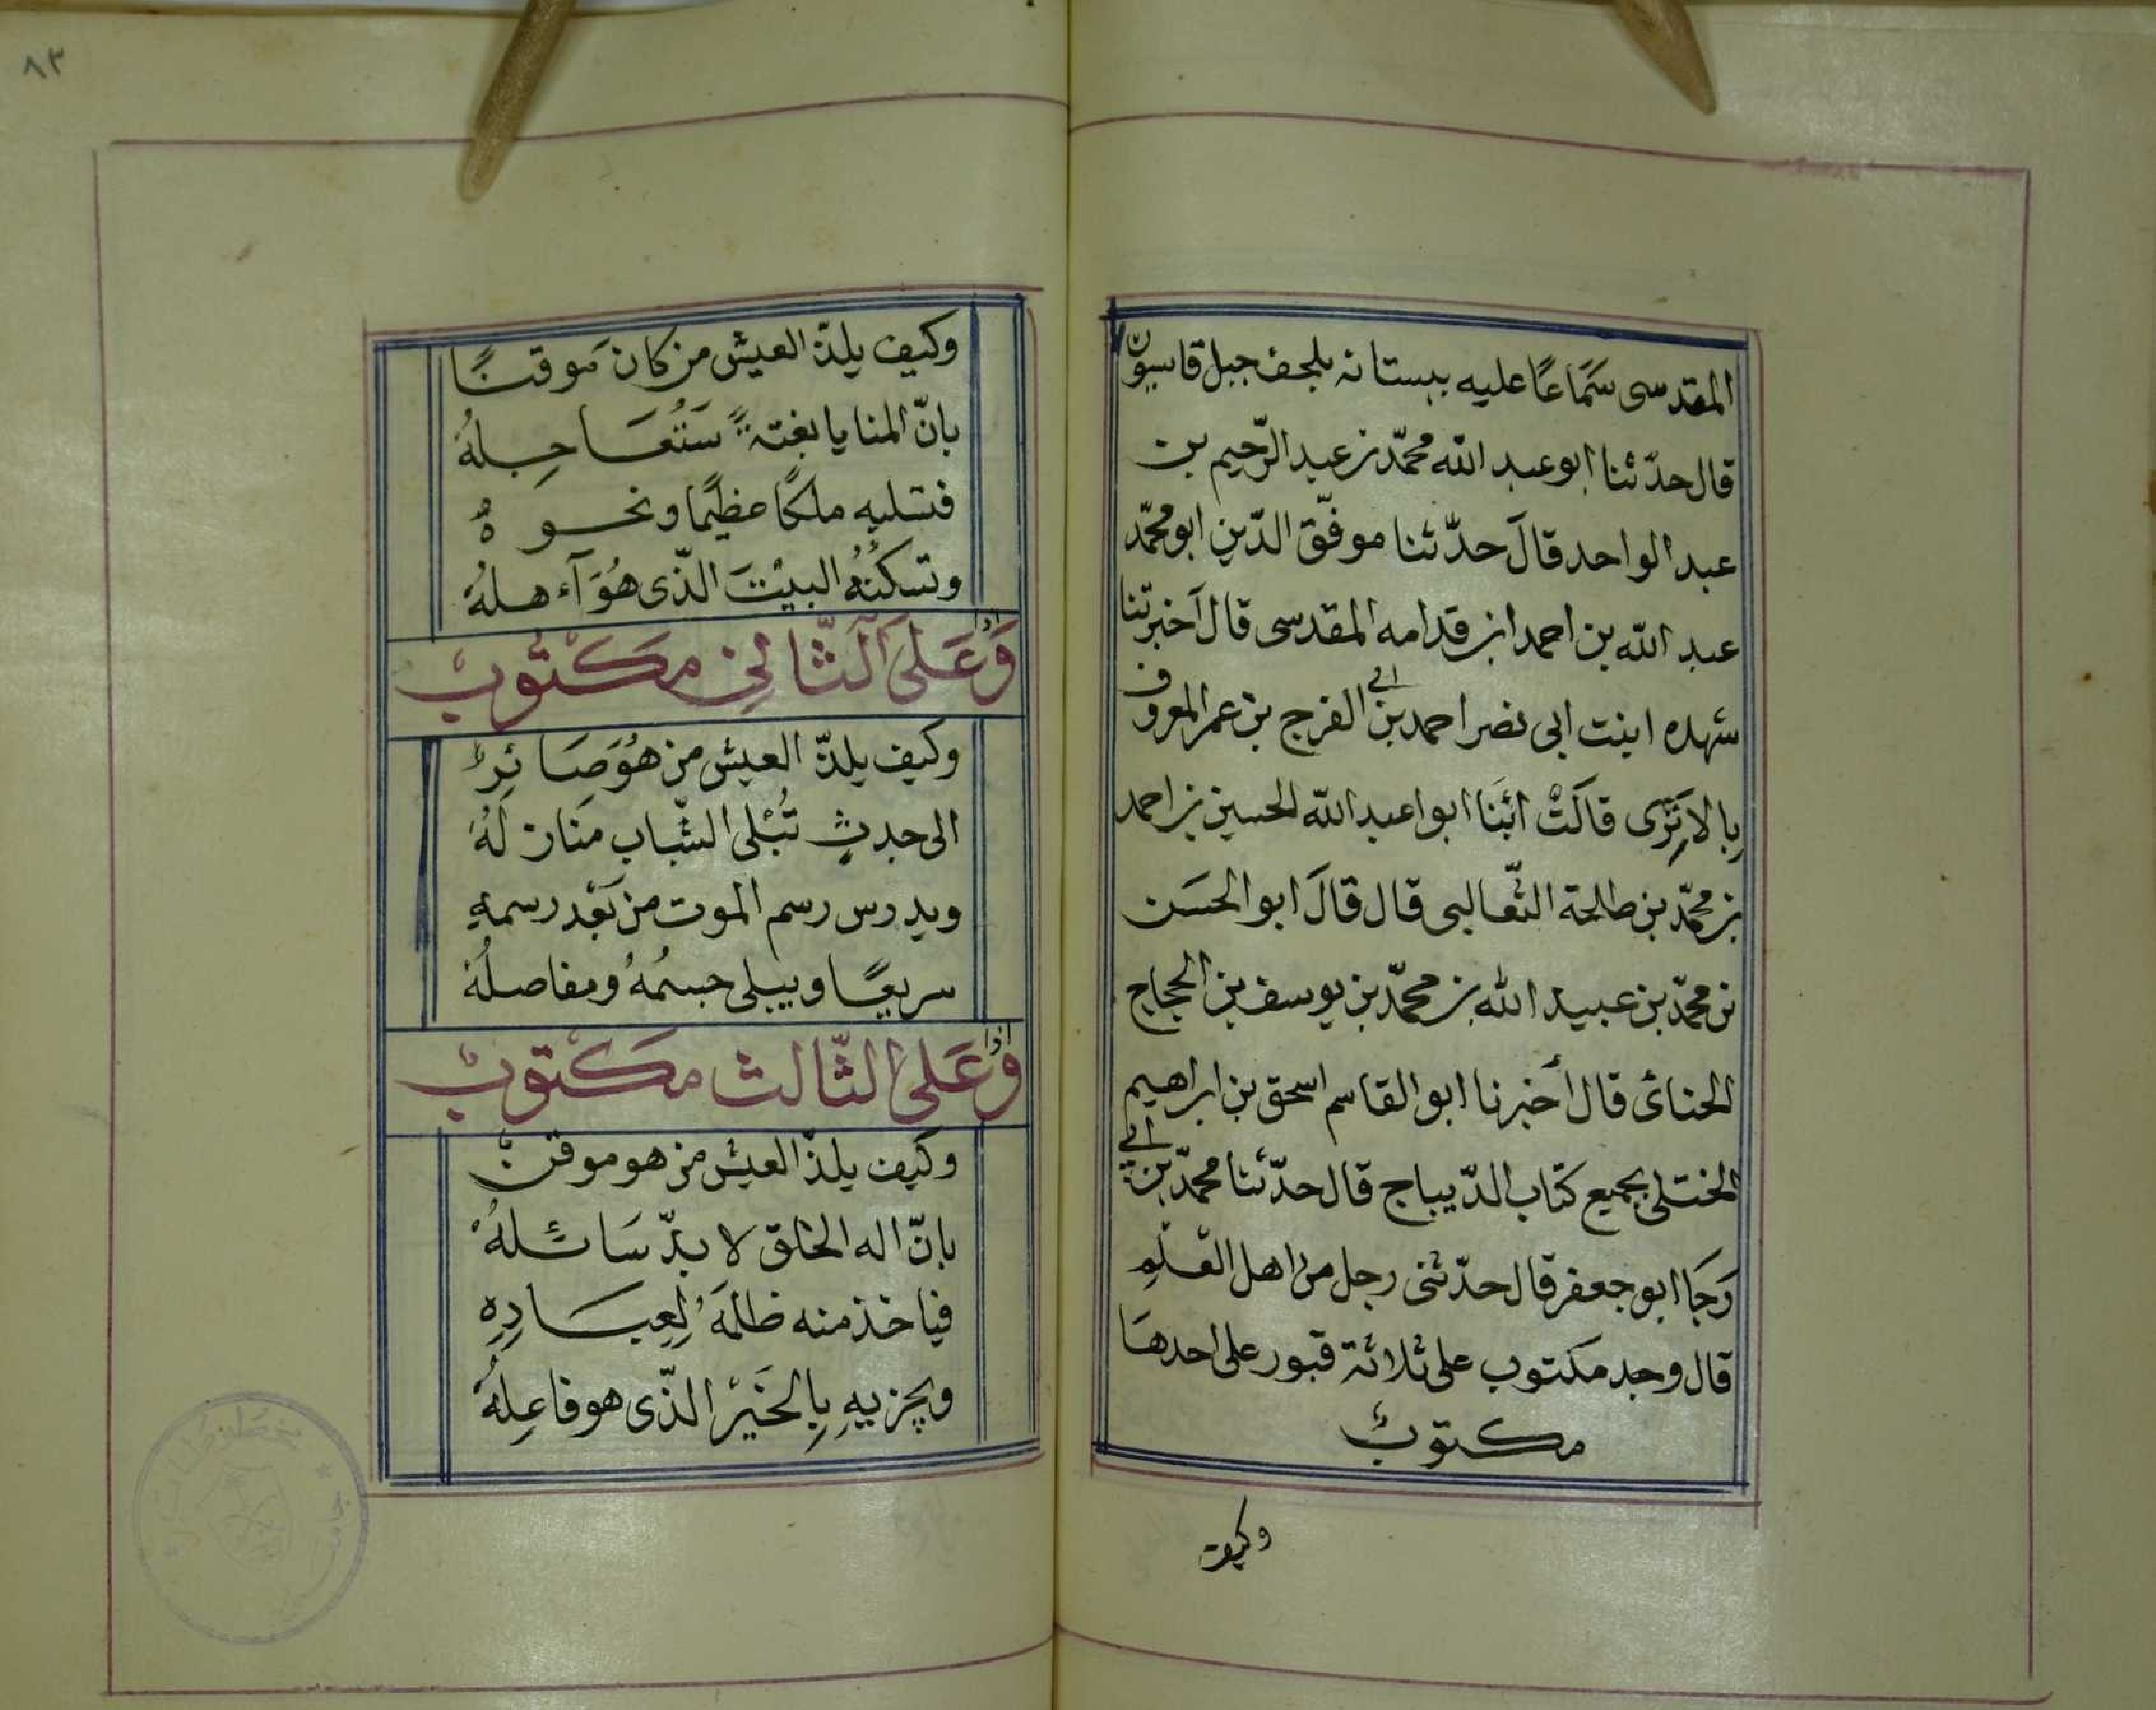 المقدسى سَمَاعًا عليه ببستانه بلحف جبل قاسيون
قال حدّثنا ابو عبد الله محمّد بن عبد الرّحيم بن
عبد الواحد قالَ حدّثنا موفّق الدّين ابو محمّد
عبد الله بن احمد ابن قدامه المقدسى قال آخبرتنا
شهده ابنت ابى نصر احمد بن ابي الفرج بن عمر المعروف
بالاِبَرَى قالَتْ انبَنَا ابوا عبد الله الحسين بن احمد
بن محمّد بن طالحة النّعالبى قال قالَ ابو الحسَن
بن محمّد بن عبيد الله بن محمّد بن يوسف بن الحجاج
الحنائ قال أخبرنا ابو القاسم اسحق بن ابراهيم
الختلى بجميع كتاب الدّيباج قال حدّثنا محمّد بن ابي
وَجَا ابو جعفر قال حدّثنى رجل من اهل العلم
قال وجد مكتوب على ثلاثة قبور على احدهَا
مكتوبٌ
وكيف
٨٣
وكيف يلذّ العيش من كان مَوقنًا
بانّ المنايا بغتةً سَتُعَاجِلهُ
فتسلبه ملكًا عظيمًا ونخوهُ
وتسكنُهُ البيْتَ الذّى هُوَ آءهلهُ
وَعَلىَ الثّانِى مَكتوبٌ اذا
وكيف يلذّ العيش من هُوَ صَائرٌ
الى جدثٍ تُبْلى الشّباب منَازلهُ
ويدرس رسم الموت من بَعْد رسمهِ
سريعًا ويبلى جسمُهُ ومفاصلُهُ
وَعَلى الثّالث مَكتوبٌ اذا
وكيف يلذّ العيش من هو موقنٌ
بانّ اله الخلق لا بدّ سَائلهُ
فياخذ منه ظلمَهُ لِعِبَادِهِ
ويجزيهِ بِالخَيْر الذّى هو فاعِلهُ